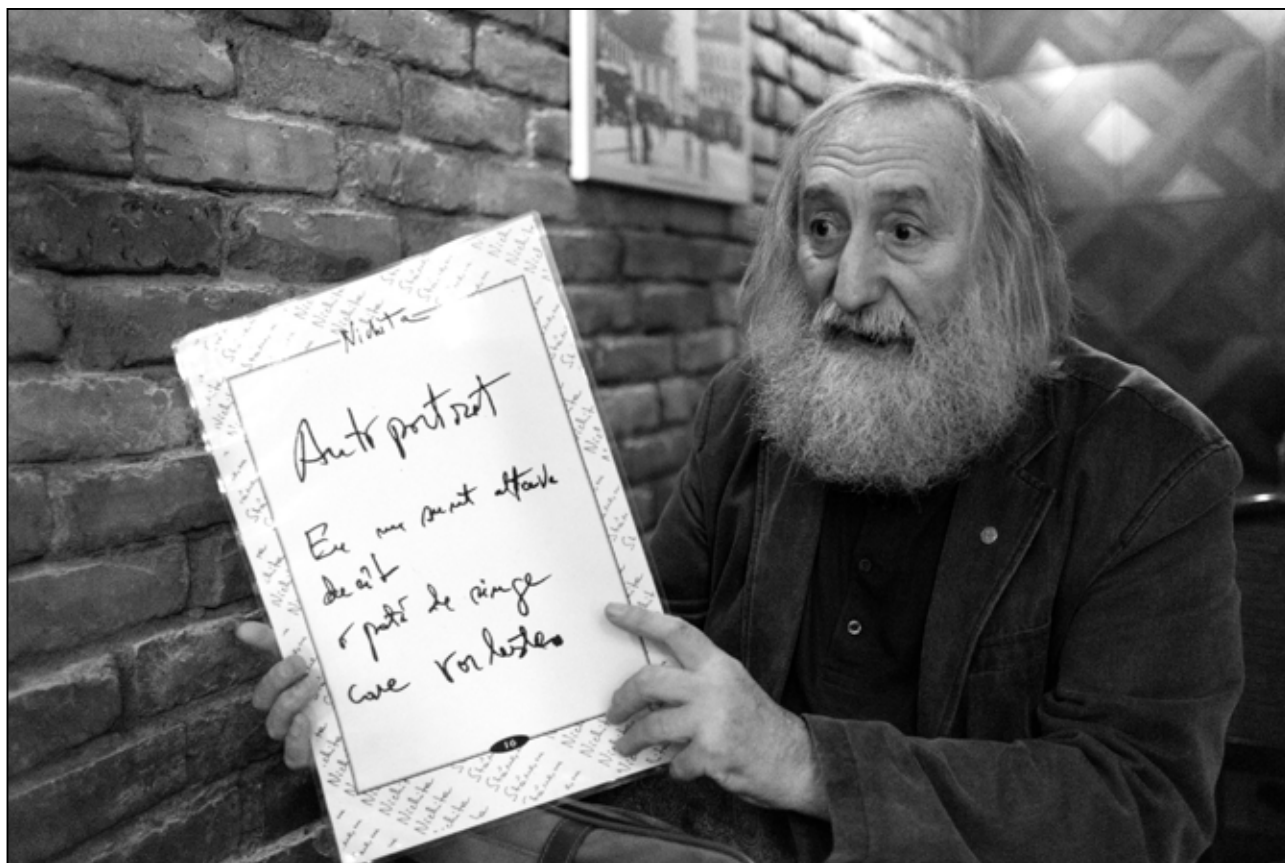 Nichita
Autoportret
Eu nu sunt altceva
decît
o pată de sînge
care vorbește.
16